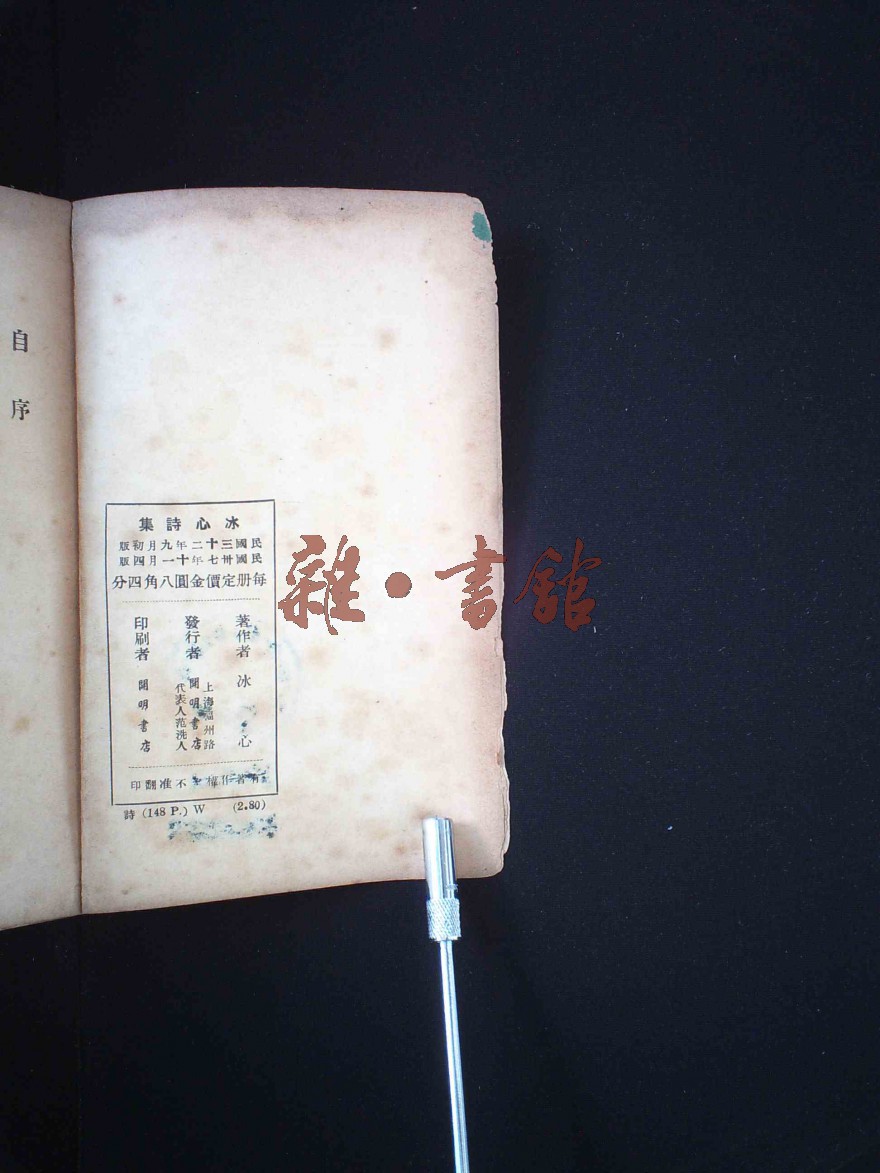 自序
冰心詩集
民國三十二年九月初版
民國卅七年十一月四版
每册定價金圓八角四分
著作者 冰心
發行者 上海福州路
開明書店
代表人范洗人
印刷者 開明書店
有著作權不准翻印
詩 (148 P.) W (2.80)
雜·書館